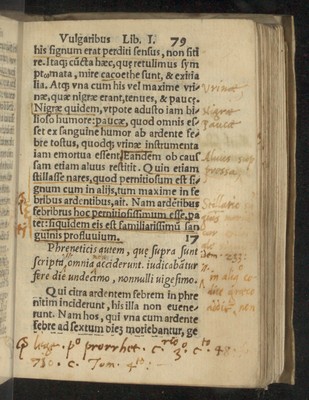 Vulgaribus Lib. I. 79
his signum erat perditi sensus, non siti
re. Itaq; cūcta hæc, quę retulimus sym
ptomata, mire cacoethe sunt, & exitia
lia. Atq; vna cum his vel maxime vri-
næ, quæ nigræ erant, tenues, & paucę.
Nigræ quidem, vtpote adusto iam bi-
lioso humore: paucæ, quod omnis es-
set ex sanguine humor ab ardente fe-
bre tostus, quodq; vrinæ instrumenta
iam emortua essent. Eandem ob cau
sam etiam aluus restitit. Quin etiam
stillasse nares, quod pernitiosum est si-
gnum cum in alijs, tum maxime in fe
bribus ardentibus, ait. Nam ardētibus
febribus hoc pernitiosissimum esse, pa
tet: siquidem eis est familiarissimū san
guinis profluuium. 17
Phreneticis autem, quę supra sunt
scripta, omnia acciderunt. iudicabātur
fere die undecimo, nonnulli uigesimo.
Qui citra ardentem febrem in phre
nitim inciderunt, his illa non euene-
runt. Nam hos, qui vna cum ardente
febre ad sextum diem moriebantur, ge
Vrinæ
Nigræ
paucæ
lege. pº prorrhet.